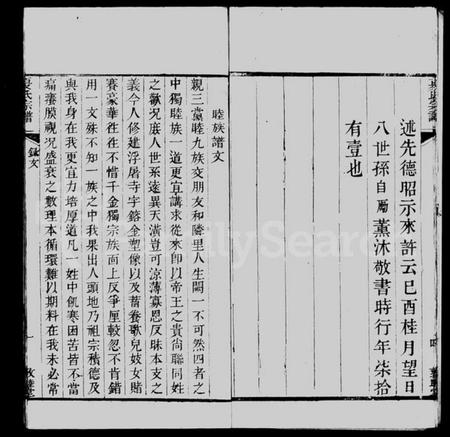 述先德昭示來許云己酉桂月望日
八世孫自勵薰沐敬書時行年柒拾
有壹也
睦族譜文
親三黨睦九族交朋友和隣里人生闕一不可然四者之
中獨睦族一道更宜講求從來即以帝王之貴尚聯同姓
之歡况庶人世系遠異天潢豈可凉薄寡恩反昧本支之
義今人修建浮屠寺宇鎔金塑像以及蓄養歌兒妓女賭
賽豪華往往不惜千金獨宗族面上反爭厘較忽不肯錯
用一文殊不知一族之中我果出人頭地乃祖宗積德及
與我身在我更宜力培厚道凡一姓中飢寒困苦皆不當
痛癢膜視况盛衰之數理本循環難以期料在我未必常
氏宗譜